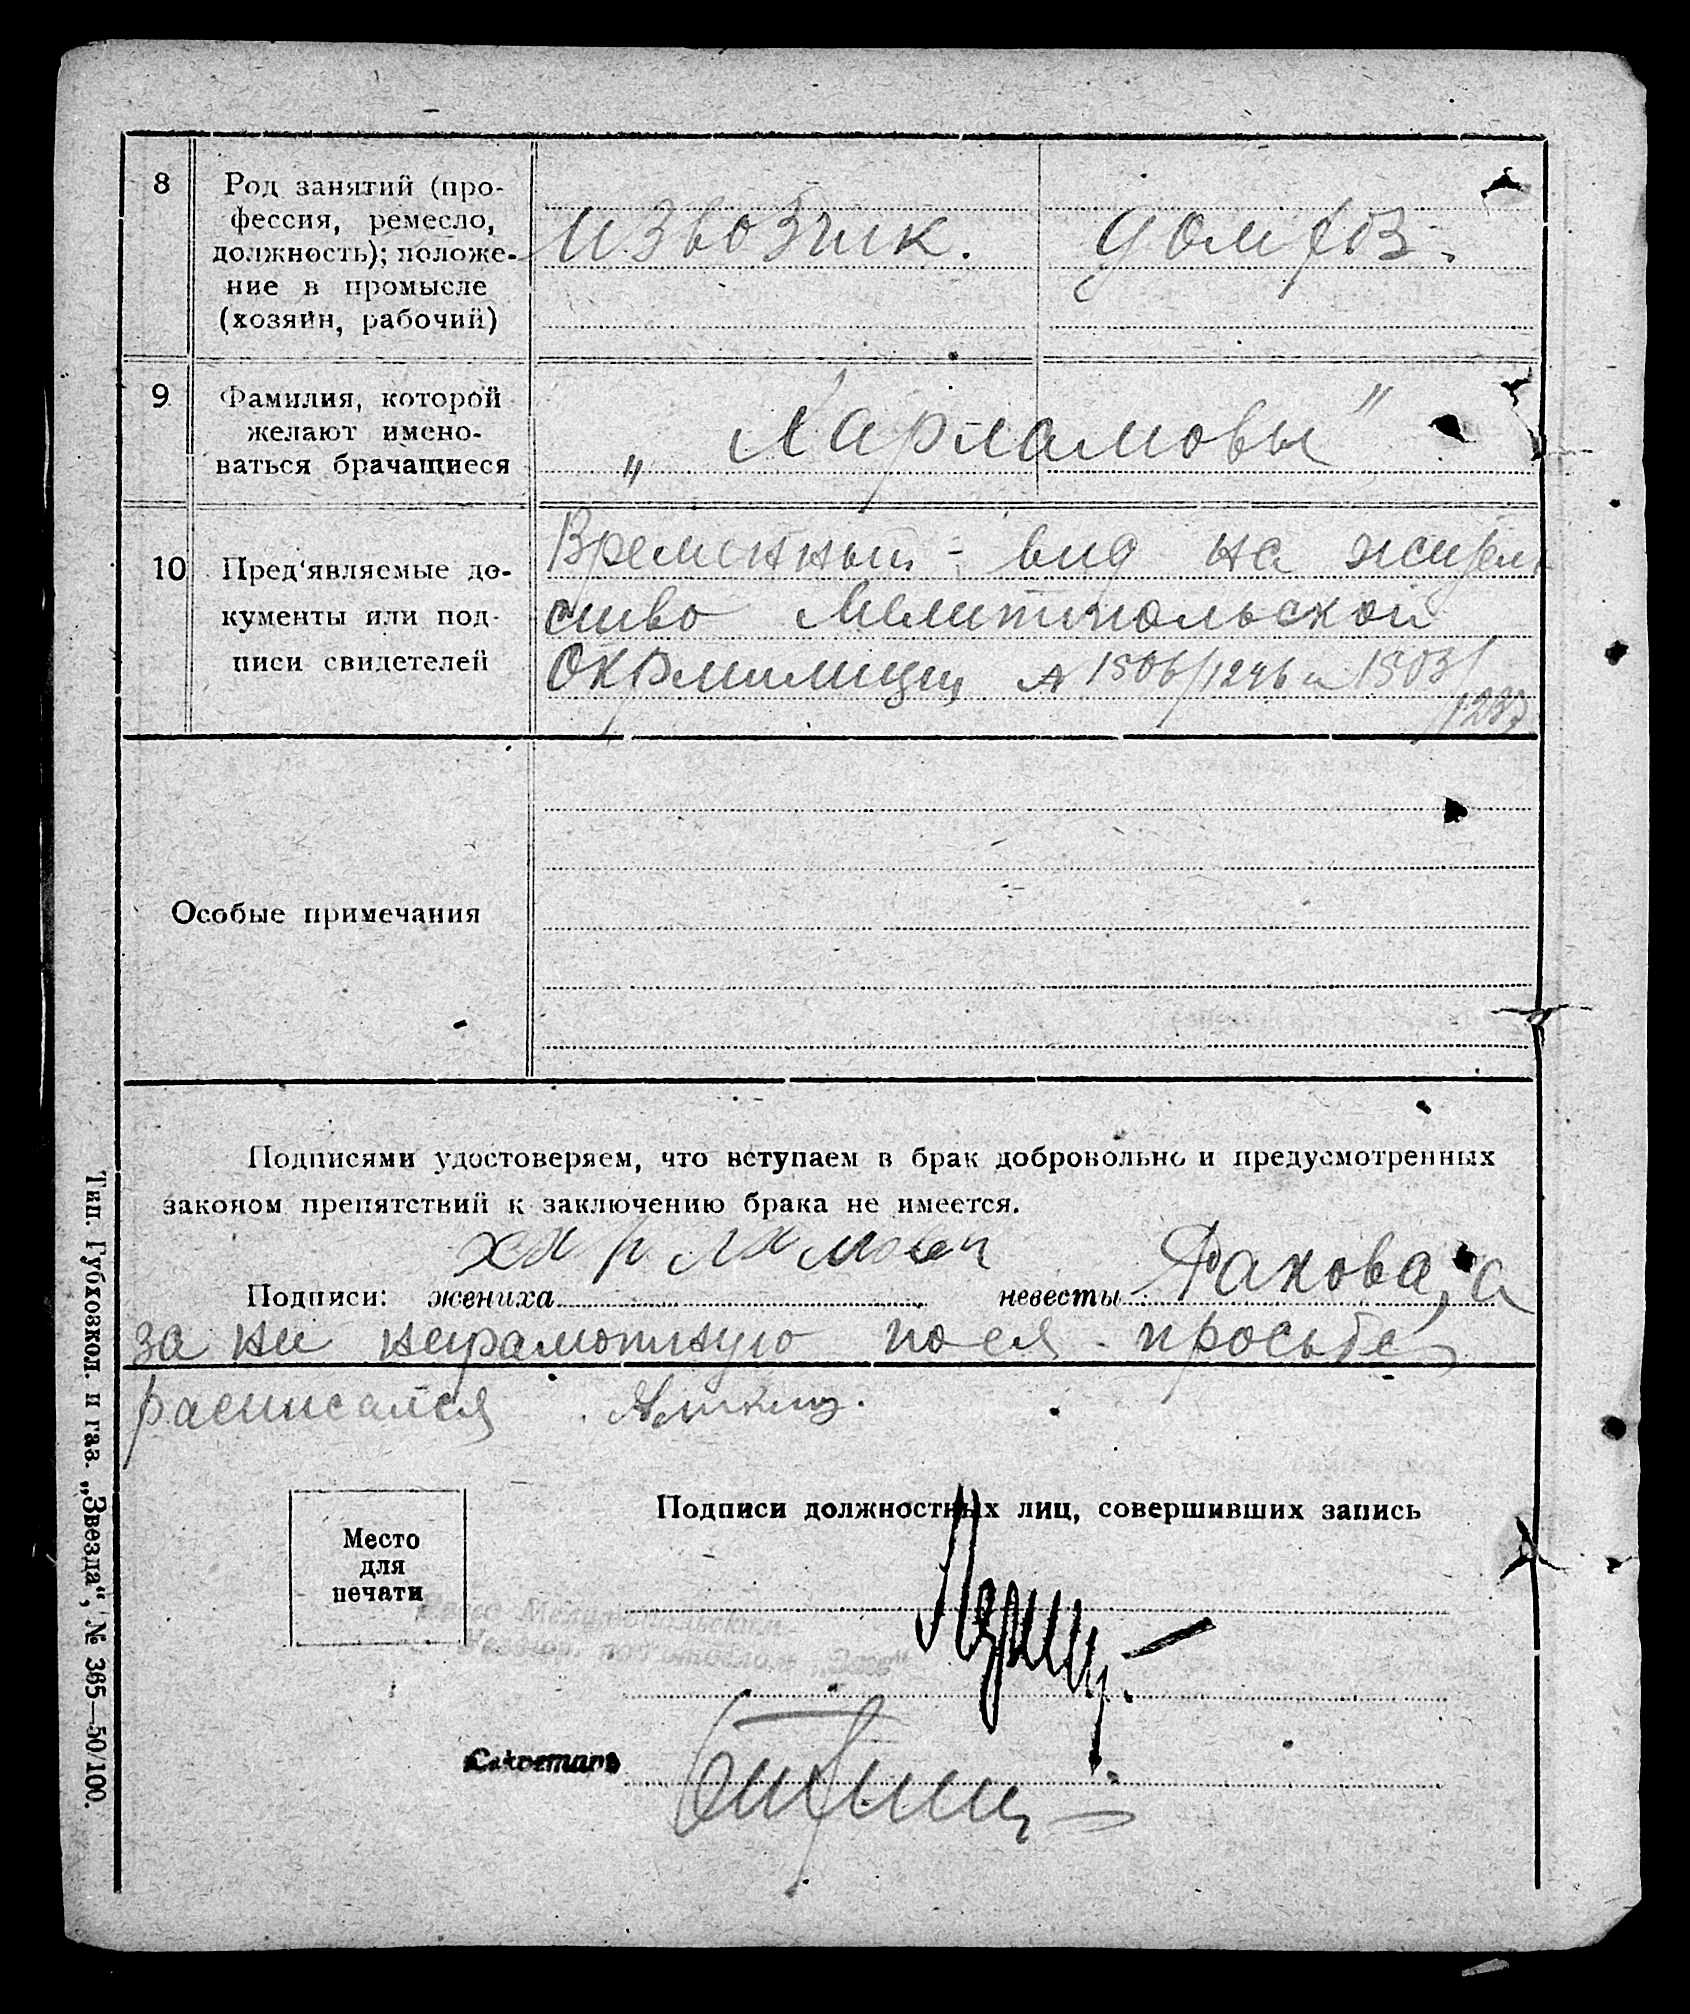 8
Род занятий (про-
фессия, ремесло,
должность); положе-
ние в промысле
(хозяин, рабочий)
извозчик.
домхоз.
9
Фамилия, которой
желают имено-
ваться брачащиеся
„Харламовы"
10
Пред'являемые до-
кументы или под-
писи свидетелей
Временный - вид на житель
ство Мелитопольской
Окрмилиции № 1506/1246 и 1503/
1237
Особые примечания
Подписями удостоверяем, что вступаем в брак добровольно и предусмотренных
законом препятствий к заключению брака не имеется.
Подписи: жениха Харламов невесты Рахова, а
за ни неграмотную по ея просьбе
расписался
Место
для
печати
Подписи должностных лиц, совершивших запись
Секретарь
Тип. Губкозкол. и газ. „Звезда", № 365—50/100.